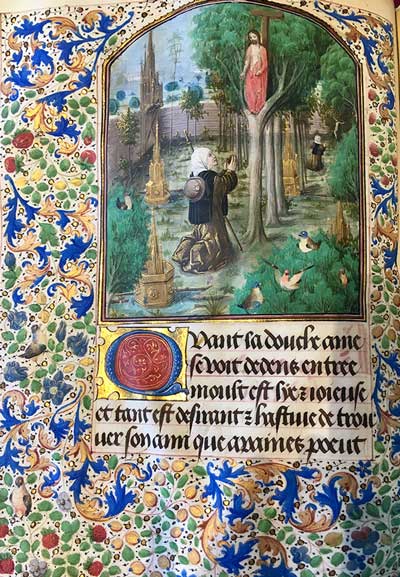 Quant la douche ame
se voit dedens entree
moult est lie et ioieuse
et tant est desirant et hastiue de trou
uer son ami que a paines poeut